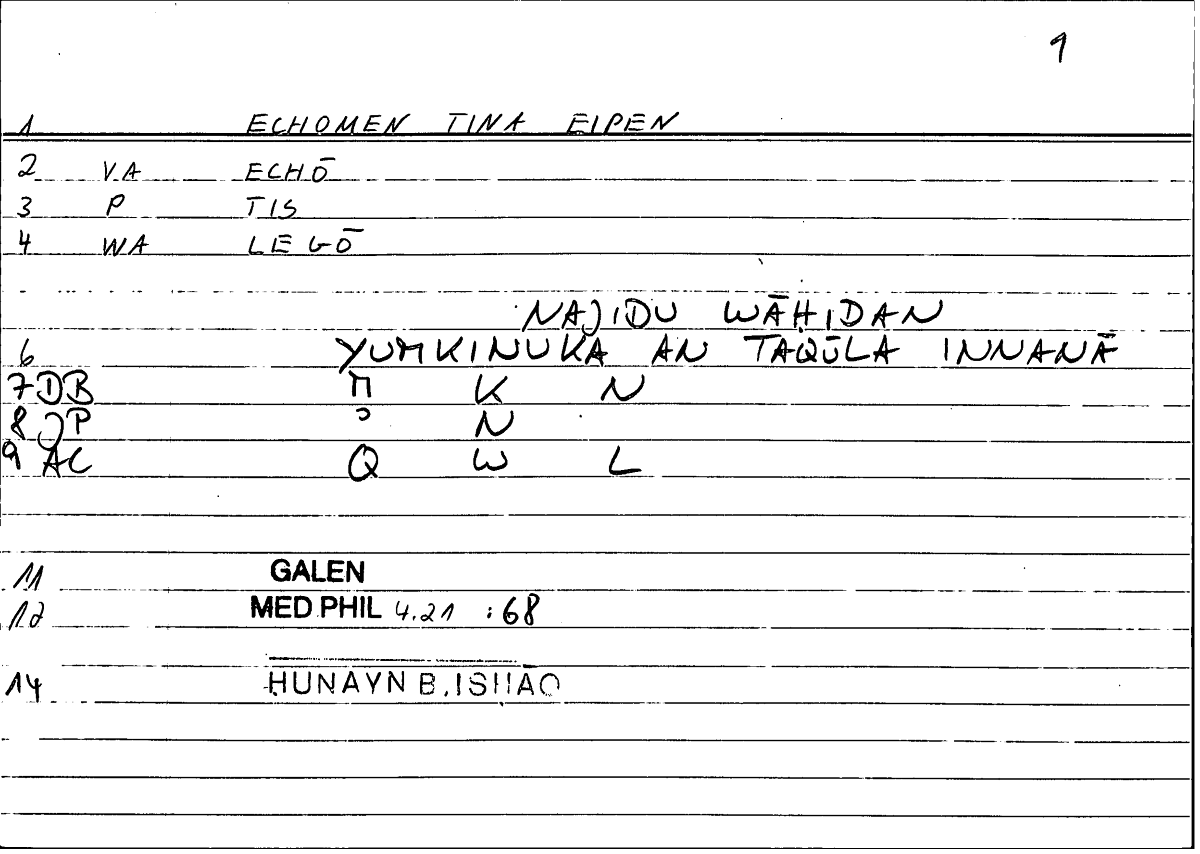 1
1 ECHOMEN TINA EIPEN
2 VA ECHŌ
3 P TIS
4 WA LEGŌ
NAJIDU WĀḤIDAN
6 YUMKINUKA AN TAQŪLA INNANĀ
7 DB M K N
8 JP ʾ N
9 AC Q W L
11 GALEN
12 MED.PHIL 4.21 :68
14 HUNAYN B.ISHAQ